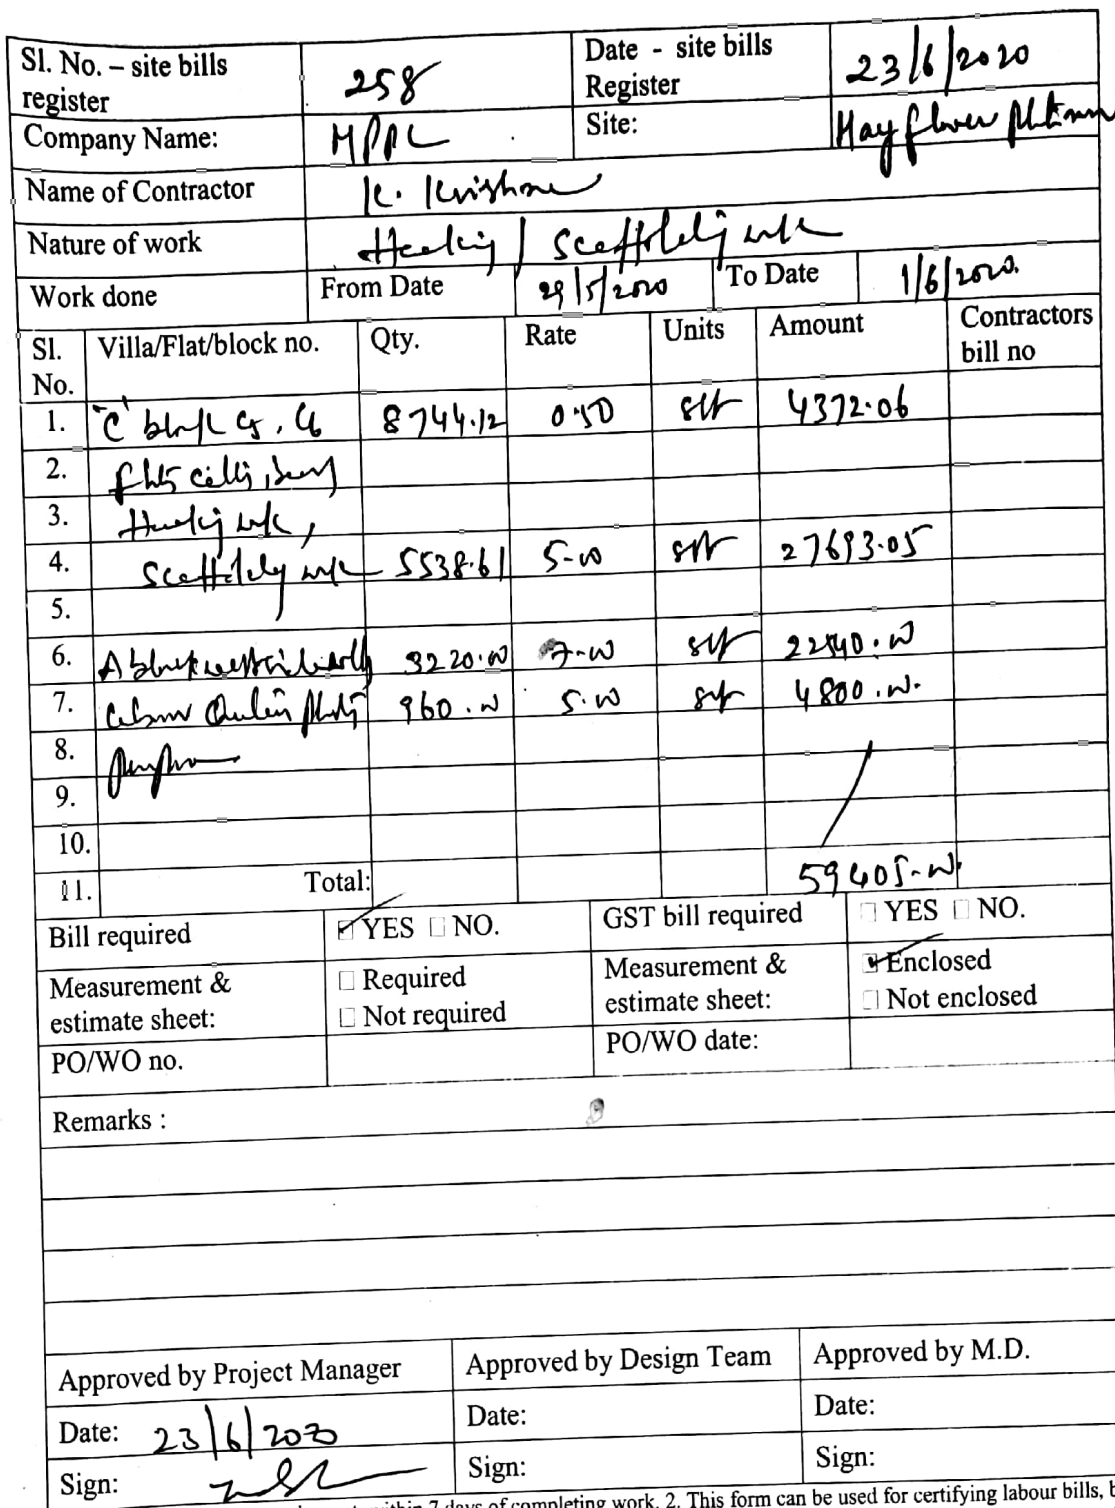 Sl. No. – site bills register 258 Date - site bills Register 23/6/2020
Company Name: MPPL Site: Mayflower Platinum
Name of Contractor K. Krishna
Nature of work Hacking / Scaffolding work
Work done From Date 29/5/2020 To Date 1/6/2020.
Sl. No. Villa/Flat/block no. Qty. Rate Units Amount Contractors bill no
1. "C" block C5, C6 8744.12 0.50 sft 4372.06
2. flats
3. Hacking work,
4. Scaffolding work 5538.61 5-00 sft 27693.05
5.
6. A block 3220.00 7-00 sft 22540.00
7. 960.00 5.00 sft 4800.00.
8.
9.
10.
11. Total: 59405-00.
Bill required ☑ YES ☐ NO. GST bill required ☐ YES ☐ NO.
Measurement & estimate sheet: ☐ Required ☐ Not required Measurement & estimate sheet: ☑ Enclosed ☐ Not enclosed
PO/WO no. PO/WO date:
Remarks :
Approved by Project Manager Approved by Design Team Approved by M.D.
Date: 23/6/2020 Date: Date:
Sign: Sign: Sign:
within 7 days of completing work. 2. This form can be used for certifying labour bills,